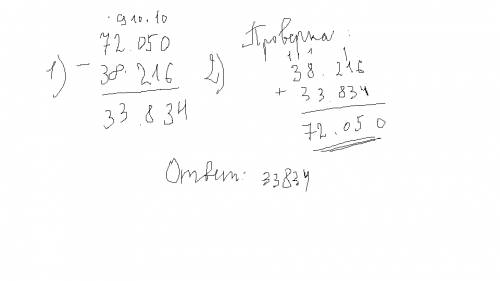 . 9 10. 10
1) - 72.050
38.216
33.834
2) Проверка:
38.216
+ 33.834
72.050
Ответ: 33834